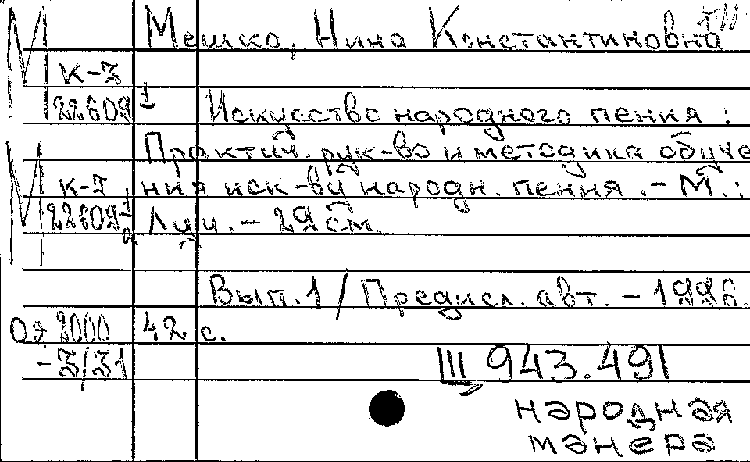 Мешко, Нина Константиновна
М К-3
22609 1 Искусство народного пения :
Практич. рук-во и методика обуче
М К-3 ния иск-ву народн. пения. - М. :
22609 Луч. - 29 см.
Вып. 1 / Предисл. авт. - 1996.
Од 2000 42 с.
-3/31 Щ 943.491
народная
манера